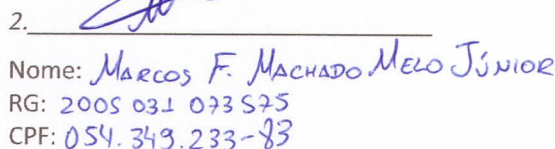 2.
Nome: MARCOS F. MACHADO MELO JÚNIOR
RG: 2005 031 073 575
CPF: 054.349.233-83